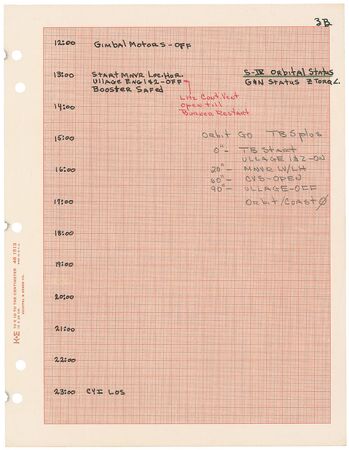 3B
12:00 Gimbal Motors-OFF
13:00 Start MNVR Loc.Hor. S-IV Orbital Status
Ullage Eng 1&2-OFF G&N Status Z Torq.
Booster Safed
LH2 Cont. Vent
14:00 Open till
Burner Restart
15:00 Orbit GO TB5 plus
0"- TB Start
ULLAGE 1&2-ON
16:00 20"- MNVR LV/LH
60"- CVS-OPEN
90"- ULLAGE-OFF
17:00 Orbit/Coast Ø
18:00
19:00
20:00
21:00
22:00
23:00 CYI LOS
K+E